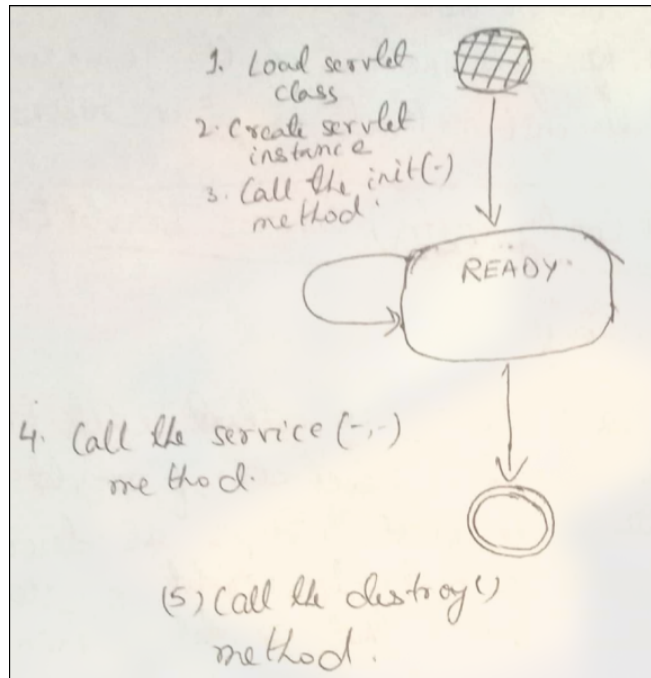 1. Load servlet
class
2. Create servlet
instance
3. Call the init(-)
method.
READY.
4. Call the service (-,-)
method.
(5) Call the destroy()
method.